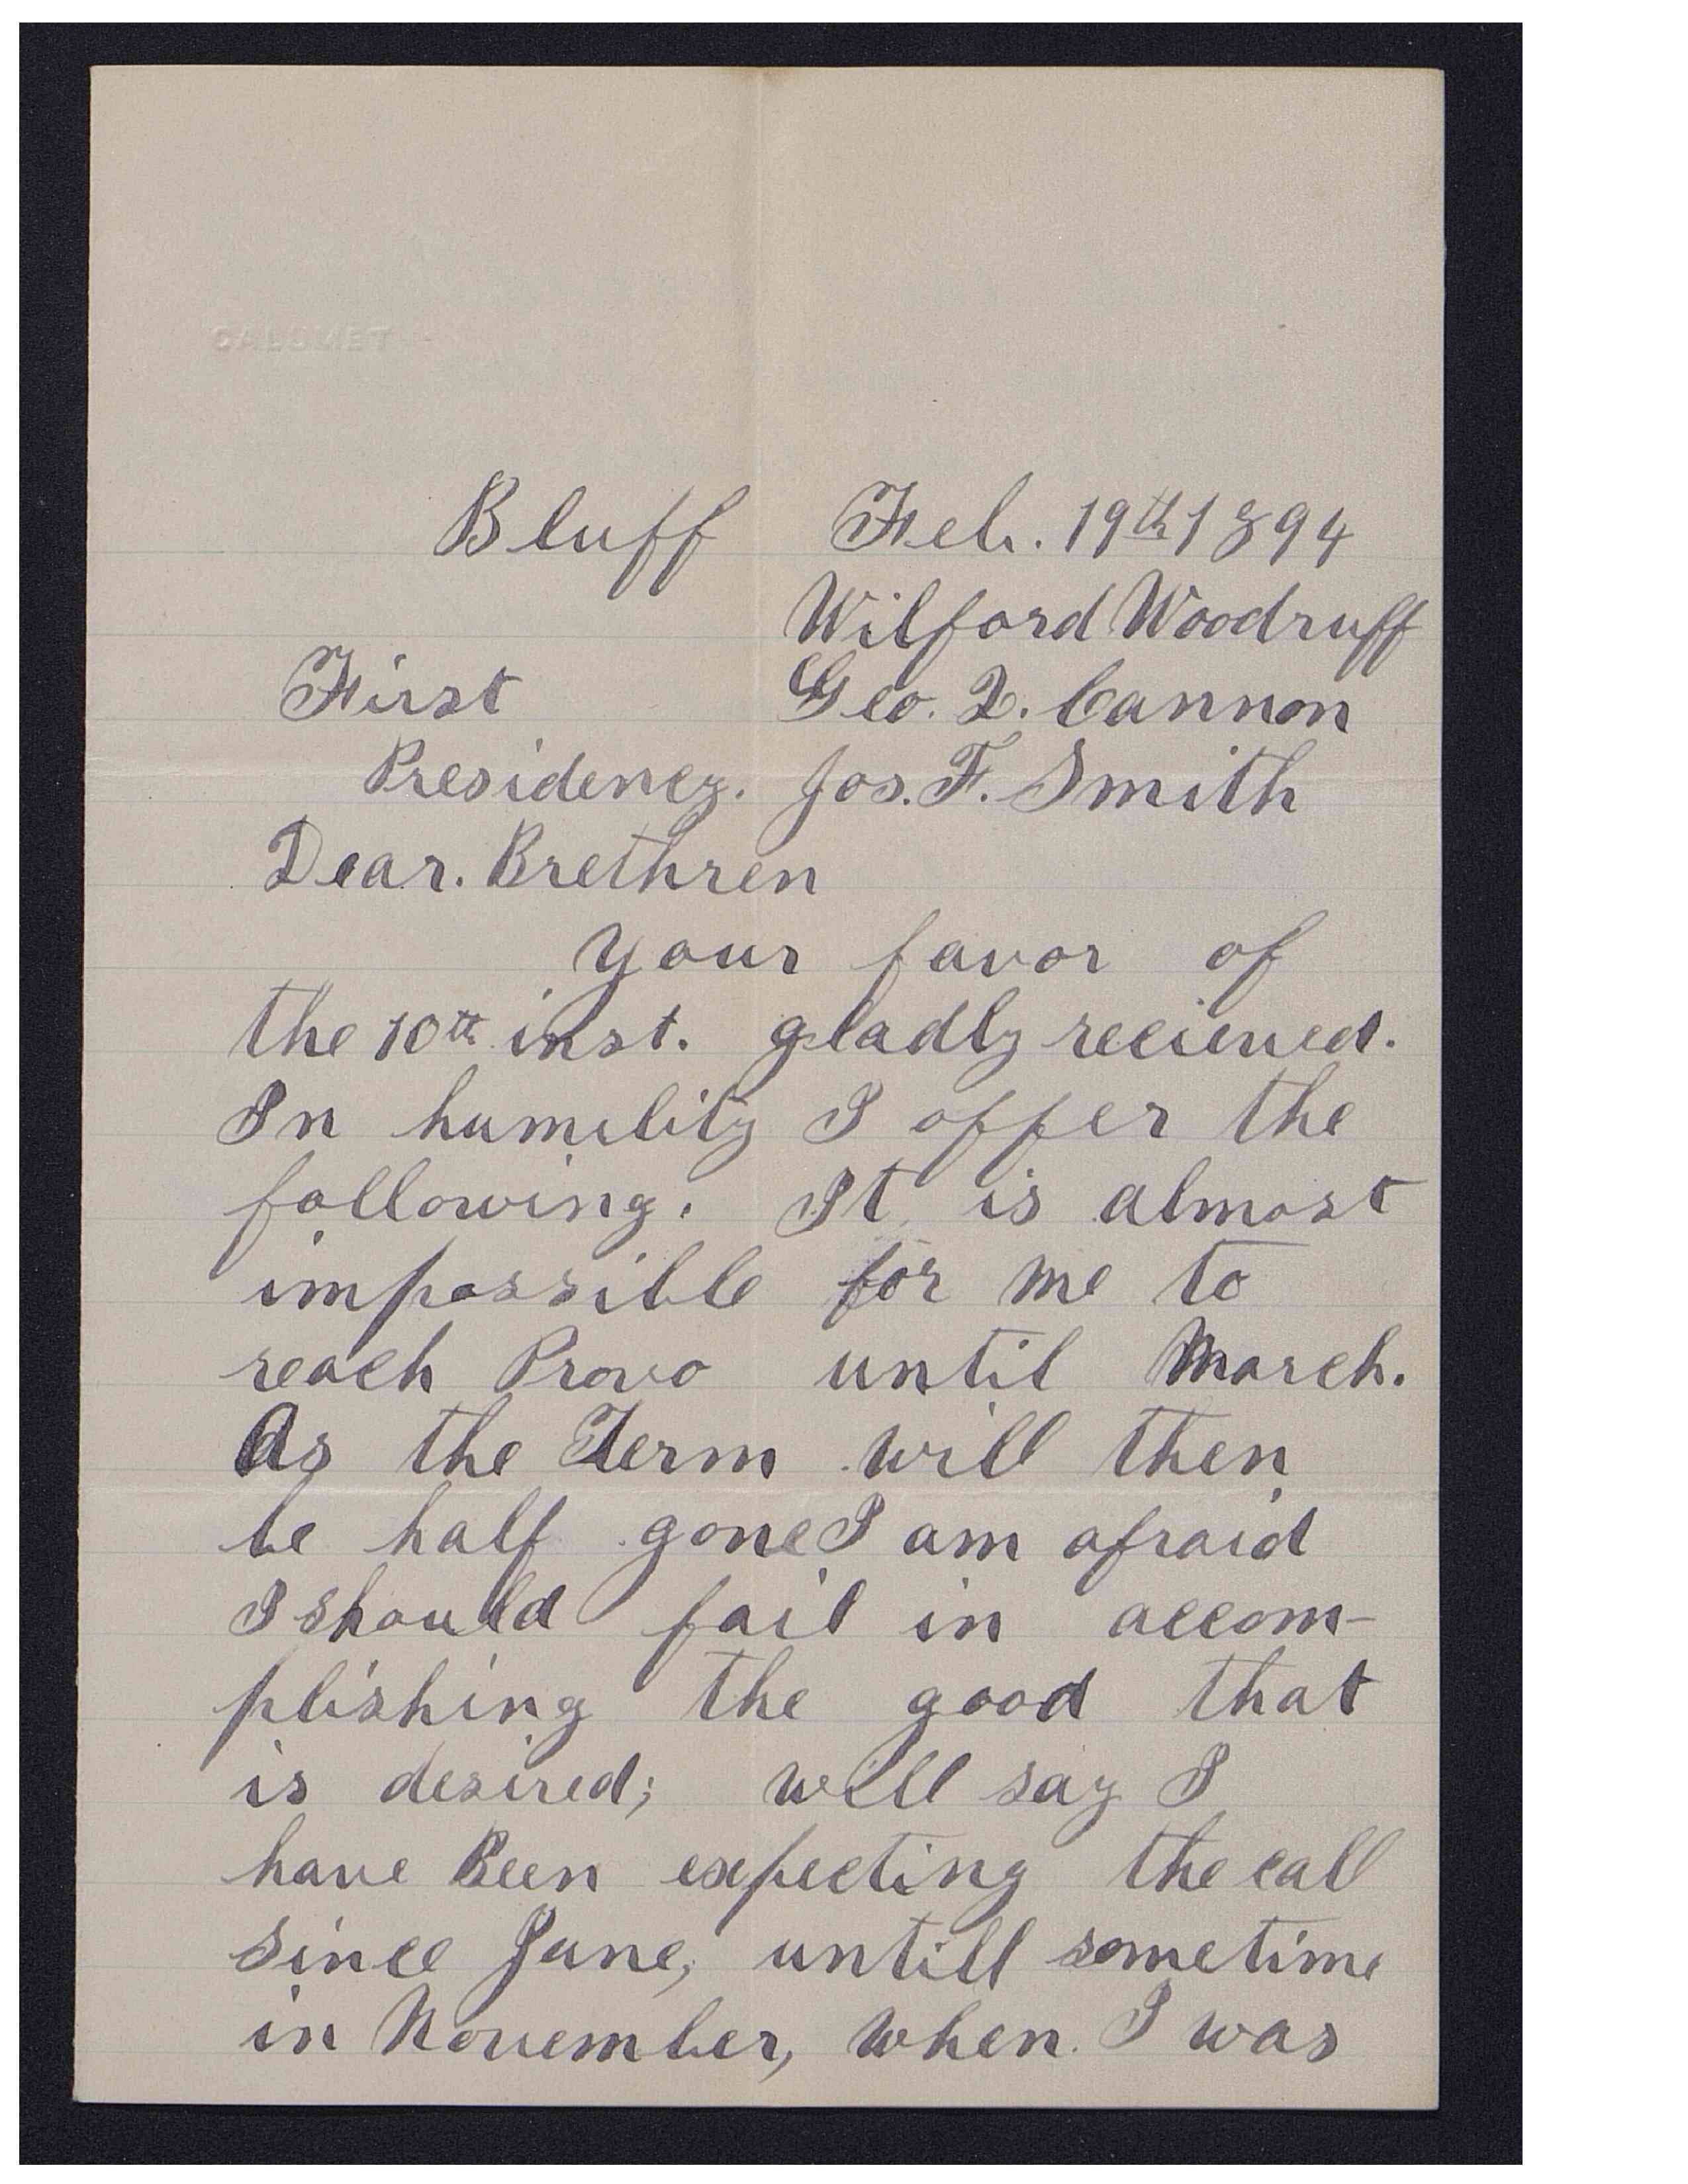 CALUMET
Bluff Feb. 19th 1894
Wilford Woodruff
First Geo. Q. Cannon
Presidency. Jos. F. Smith
Dear. Brethren
Your favor of
the 10th inst. gladly recieved.
In humility I offer the
following. It is almost
impossible for me to
reach Provo until March.
As the Term will then
be half gone I am afraid
I should fail in accom-
plishing the good that
is desired; will say I
have Been expecting the call
since June, untill sometime
in November, when. I was